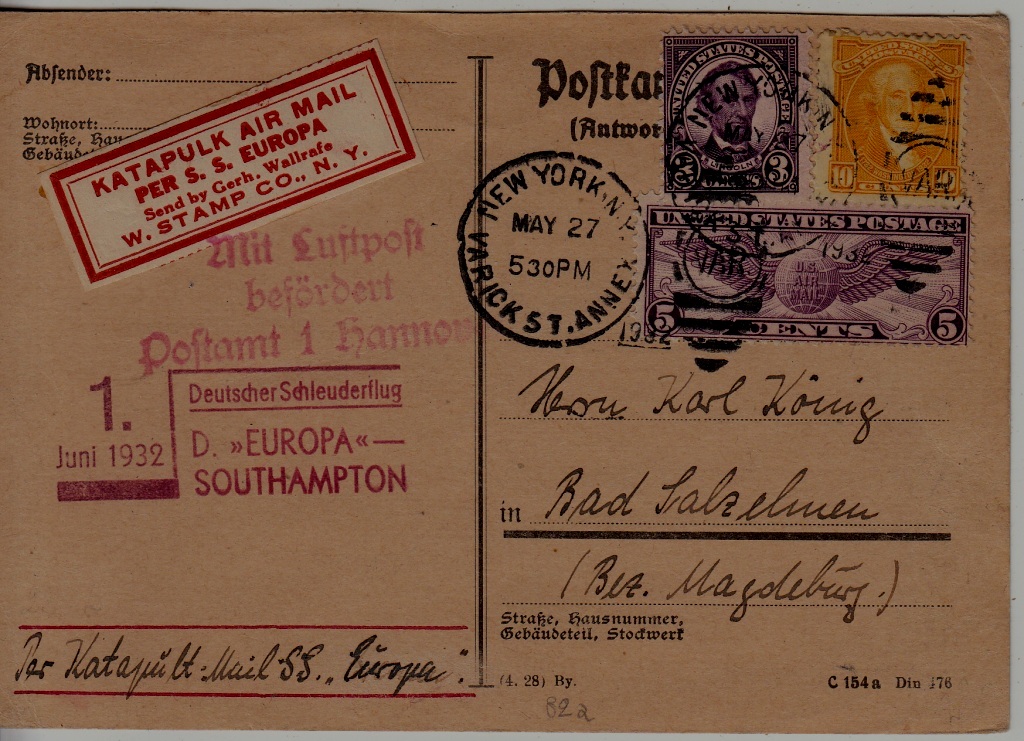 Absender:
Wohnort:
Straße, Hau
Gebäudet
KATAPULK AIR MAIL
PER S. S. EUROPA
Send by Gerh. Wallrafe
W. STAMP CO., N. Y.
Mit Luftpost
befördert
Postamt 1 Hannov
1.
Juni 1932
Deutscher Schleuderflug
D. »EUROPA«—
SOUTHAMPTON
Per Katapult-Mail SS. „Europa".
Postkar
(Antwor
NEW YORK, N.Y.
MAY 27
5 30 PM
VARICK ST. ANNEX
1932
UNITED STATES POSTAGE
3 LINCOLN 3
NEW YORK, N
MAY 27
1932
10
VAR
UNITED STATES POSTAGE
U.S.
AIR
MAIL
5 CENTS 5
VAR
Herrn Karl König
in Bad Salzelmen
(Bez. Magdeburg.)
Straße, Hausnummer,
Gebäudeteil, Stockwerk
(4. 28) By.
C 154a Din 476
82a